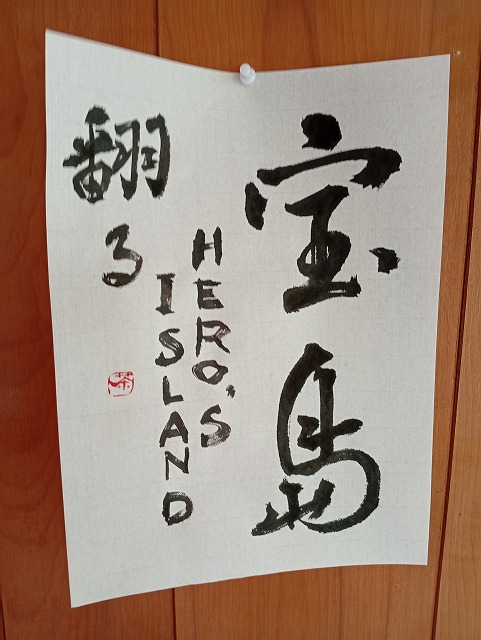 宝島
HERO'S
ISLAND
翻る
茶